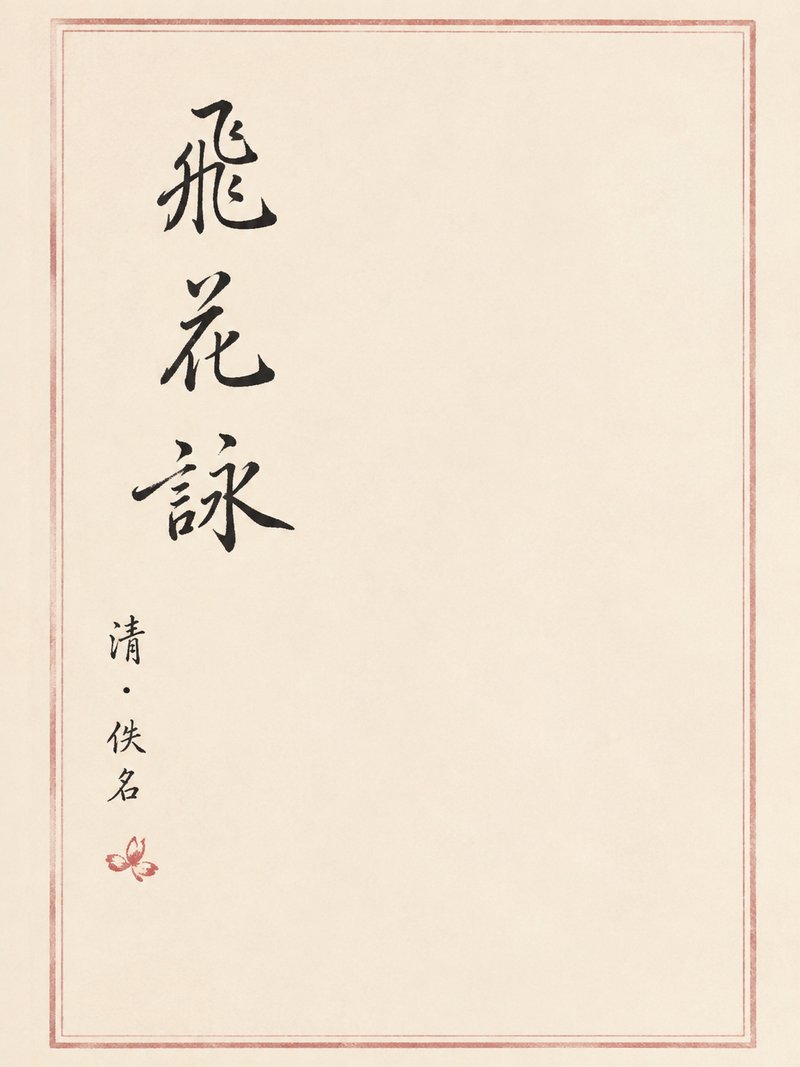 飛花詠
清・佚名